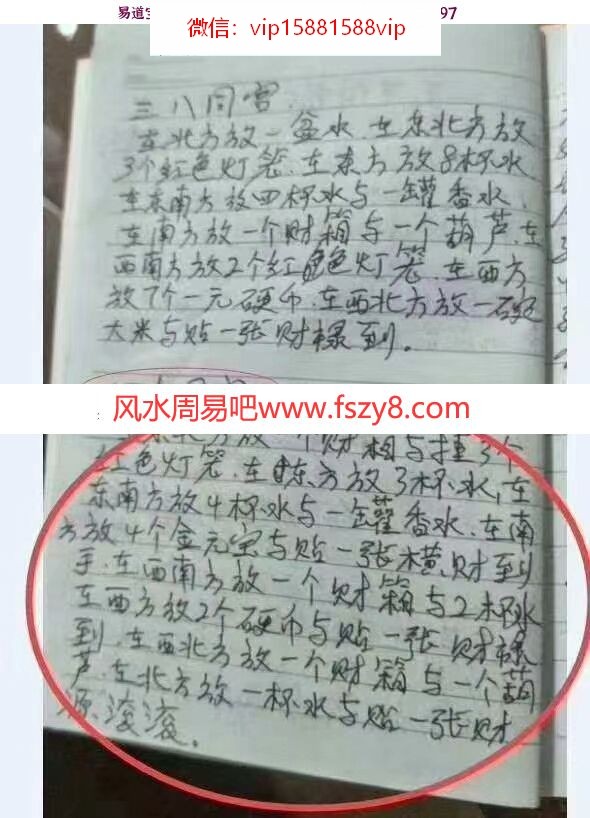 易道宝
97
微信：vip15881588vip
三八同宫.
在北方放一盆水.在东北方放
3个红色灯笼.在东方放8杯水
在东南方放四杯水与一罐香水.
在南方放一个财箱与一个葫芦.在
西南方放2个红色灯笼.在西方
放7个一元硬币.在西北方放一碗
大米与贴一张财禄到.
风水周易吧www.fszy8.com
东北方放一个财箱与挂3个
红色灯笼.在东方放3杯水,在
东南方放4杯水与一罐香水.在南
方放4个金元宝与贴一张横财到
手.在西南方放一个财箱与2杯水
在西方放2个硬币与贴一张财禄
到.在西北方放一个财箱与一个葫
芦.在北方放一杯水与贴一张财
源滚滚.